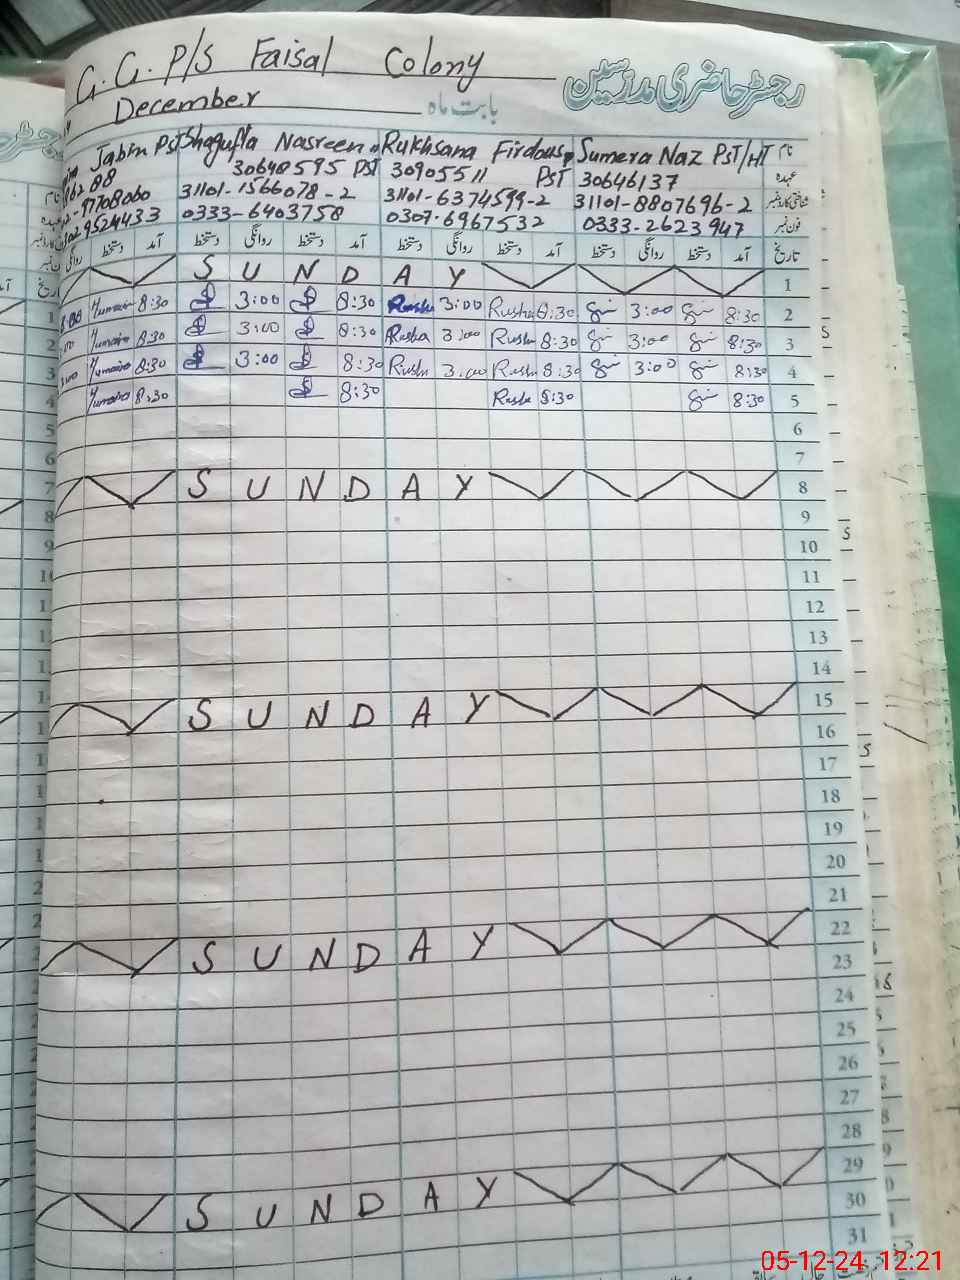 G. G. P/S Faisal Colony
رجسٹر حاضری مدرسین
December بابت ماہ
Jabin PST Shagufta Nasreen Rukhsana Firdous Sumera Naz PST/HT نام
30640595 PST 30905511 PST 30646137 عہدہ
97708060 31101-1566078-2 31101-6374599-2 31101-8807696-2 شناختی کارڈ نمبر
0333-6403758 0307-6967532 0333-2623947 فون نمبر
دستخط آمد دستخط روانگی دستخط آمد دستخط روانگی دستخط آمد دستخط روانگی دستخط آمد تاریخ
S U N D A Y 1
8:30 3:00 8:30 3:00 8:30 3:00 8:30 2
8:30 3:00 8:30 Rusha 3:00 8:30 3:00 8:30 3
8:30 3:00 8:30 3:00 8:30 3:00 8:30 4
8:30 8:30 8:30 8:30 5
6
7
S U N D A Y 8
9
10
11
12
13
14
S U N D A Y 15
16
17
18
19
20
21
S U N D A Y 22
23
24
25
26
27
28
S U N D A Y 29
30
31
05-12-24 12:21